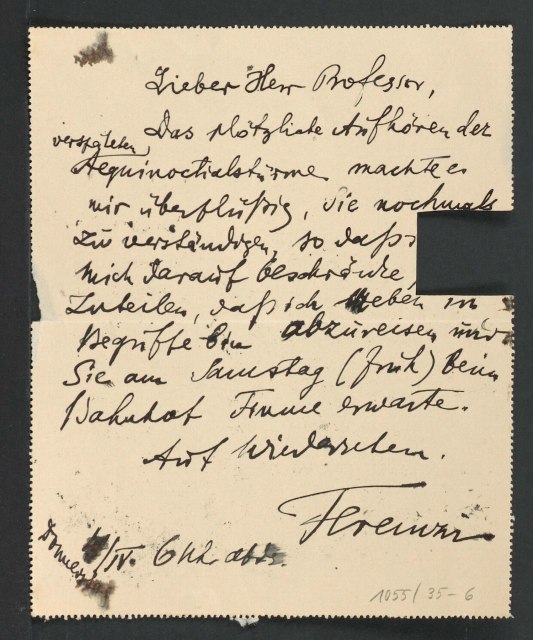 Lieber Herr Professor,
Das plötzliche Aufhören der
verspäteten
Aequinoctialstürme machte es
mir überflüßig, Sie nochmals
zu verständigen, so daß
mich darauf beschränke,
zuteilen, daß ich eben im
Begriffe bin abzureisen und
Sie am Samstag (früh) beim
Bahnhof Fiume erwarte.
Auf Wiedersehen.
Ferenczi
Donnerst /IV. 6 Uh. abds.
1055/35-6